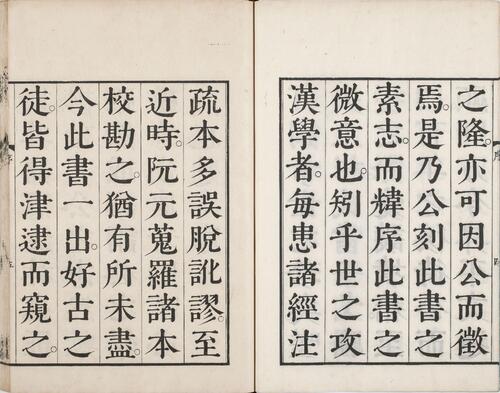 之隆。亦可因公而徵
焉。是乃公刻此書之
素志。而緯序此書之
微意也。矧乎世之攻
漢學者。每患諸經注
疏本多誤脫訛謬。至
近時。阮元蒐羅諸本
校勘之。猶有所未盡。
今此書一出。好古之
徒。皆得津逮而窺之。